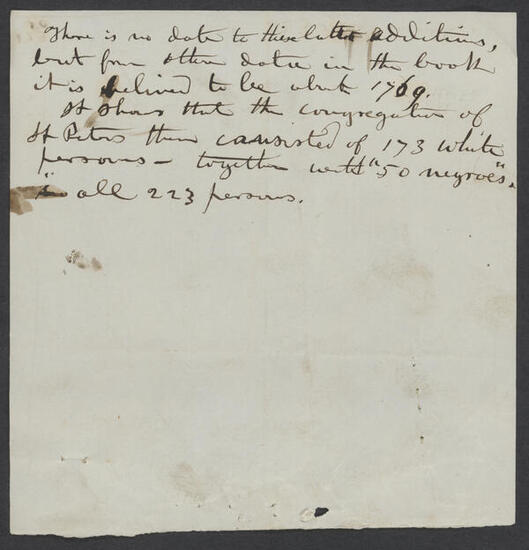 There is no date to these latter additions,
but from other data in the book
it is believed to be about 1769.
It shows that the congregation of
St Peters then consisted of 173 white
persons - together with "50 negroes".
in all 223 persons.